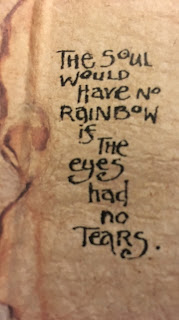 THE SOUL
WOULD
HAVE NO
RAINBOW
if THE
eyes
had
no
TEARS.